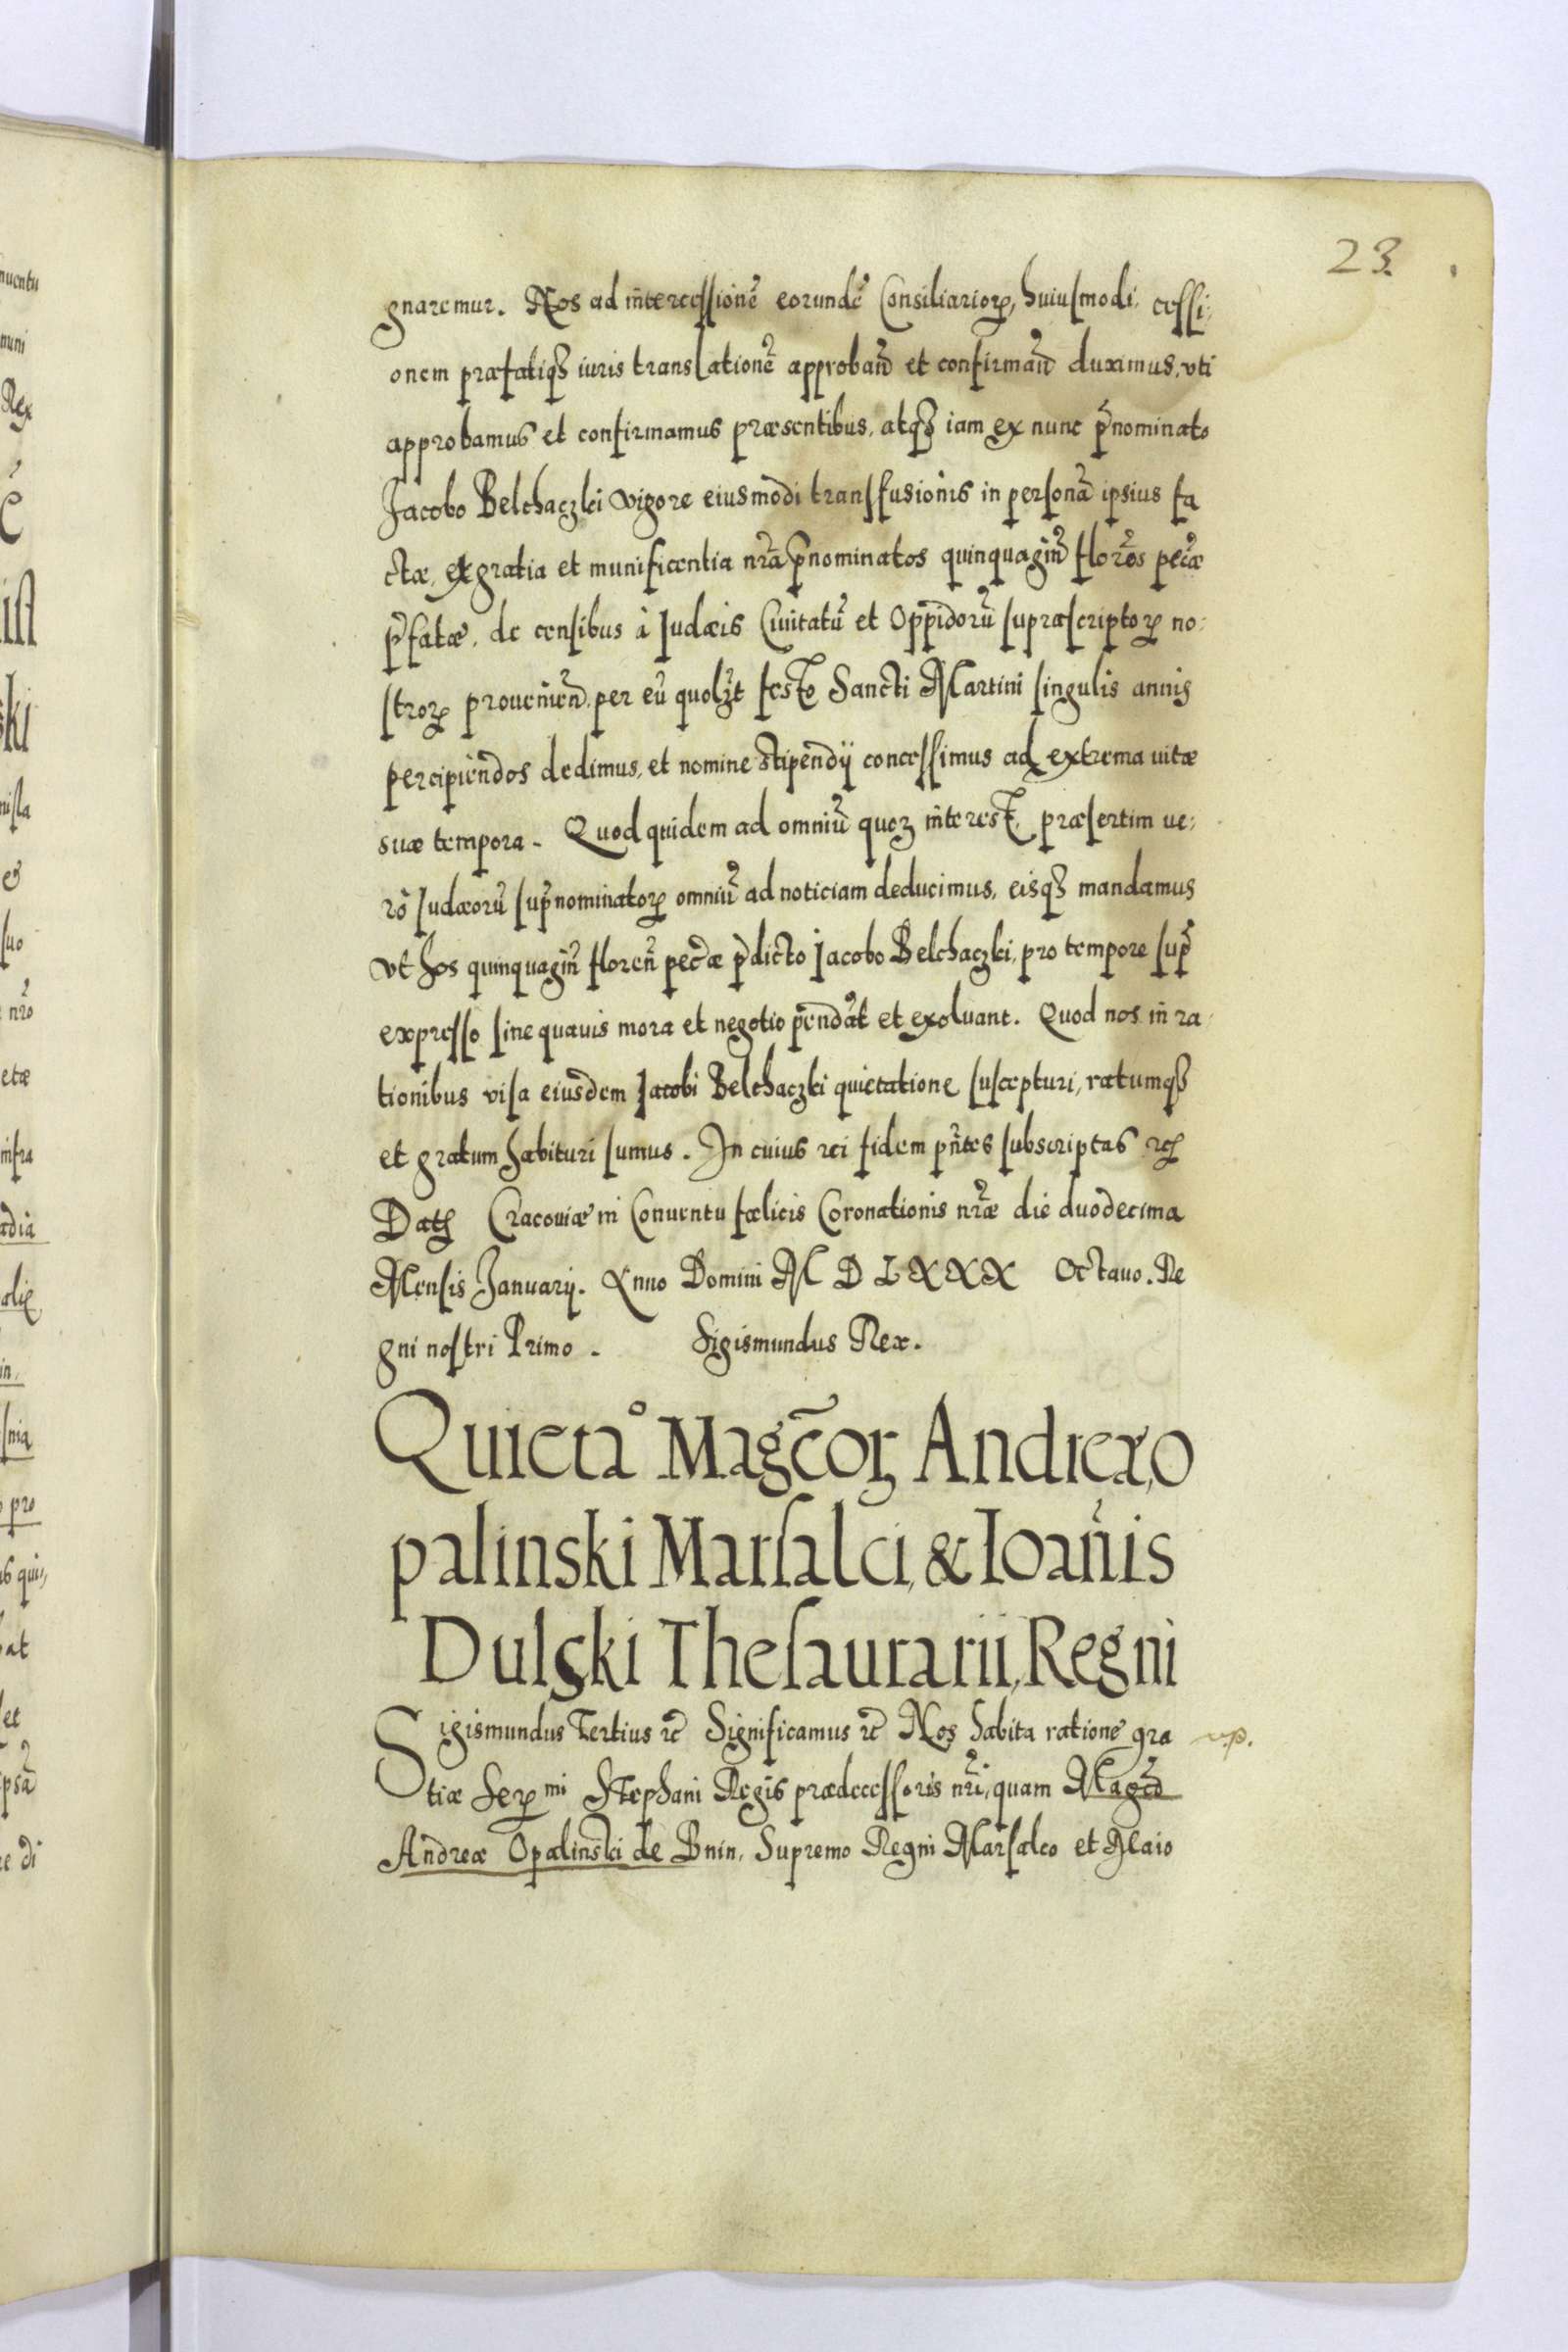 23.
gnaremur. Nos ad intercessionē eorundē Consiliarioꝝ, huiusmodi, cessi:
onem præfatiqꝫ iuris translationē approban̄ et confirman̄ duximus, vti
approbamus et confirmamus præsentibus, atqꝫ iam ex nunc p̄nominato
Jacobo Belchaczki vigore eiusmodi transfusionis in personā ipsius fa
ctæ, ex gratia et munificentia nr̄a p̄nominatos quinquagin̄ florēos pec̄æ
p̄fatæ, de censibus à Iudæis Ciuitatū et Oppidorū supræscriptoꝝ no:
stroꝝ prouenien̄, per eū quolꝫt festo Sancti Martini singulis annis
percipiendos dedimus, et nomine stipendij concessimus ad extrema uitæ
suæ tempora. Quod quidem ad omniū quoꝝ interest, præsertim ue:
rò Iudæorū sup̄nominatoꝝ omniū ad noticiam deducimus, eisqꝫ mandamus
vt hos quinquagin̄ floren̄ pec̄æ p̄dicto Jacobo Belchaczki, pro tempore sup̄
expresso sine quauis mora et negotio pendāt et exoluant. Quod nos in ra
tionibus visa eiusdem Jacobi Belchaczki quietatione suscepturi, ratumqꝫ
et gratum habituri sumus. In cuius rei fidem p̄ntes subscriptas etc̄
Dat̄ Cracouiæ in Conuentu fœlicis Coronationis nr̄æ die duodecima
Mensis Januarij. Anno Domini M D L X X X Octauo. Re
gni nostri Primo. Sigismundus Rex.
Quieta° Magc̄oꝝ Andreæ, o
palinski Marsalci, & Ioan̄is
Dulski Thesaurarii, Regni
Sigismundus Tertius etc̄ Significamus etc̄ Nos habita ratione gra
tiæ Serᵐⁱ Stephani Regis prædecessoris nr̄i, quam Magc̄o
Andreæ Opalinski de Bnin, Supremo Regni Marsalco et Maio